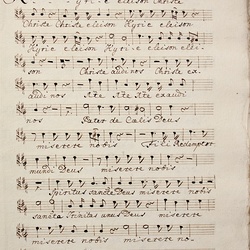 Kyri-e eleison Christe
Christe Christe eleison Kyrie e
Kyrie eleison Kyri-e eleison elei-
son Christe audi nos Christe ex-
audi nos
nos Pater de Cælis Deus
miserere nobis Fili Redemptor
mundi Deus miserere nobis
Spiritus sancte Deus miserere nobis
sancta Trinitas unus Deus miserere
miserere nobis miserere no-